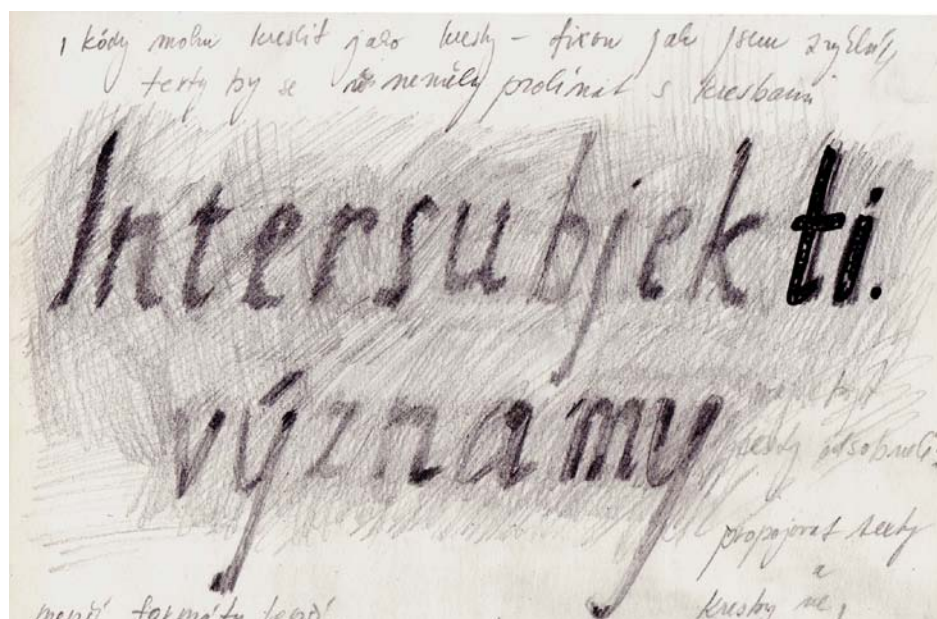 i kódy mohu kreslit jako kresby – fixou jak jsem zvyklý,
texty by se neměly prolínat s kresbami
Intersubjekti.
významy
texty
propojovat texty
a
kresby ne,
menší formáty lepší